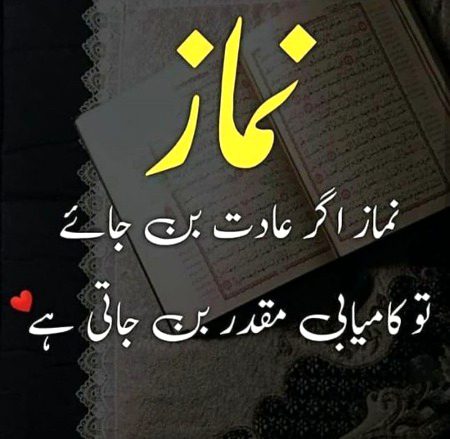 نماز
نماز اگر عادت بن جائے
تو کامیابی مقدر بن جاتی ہے